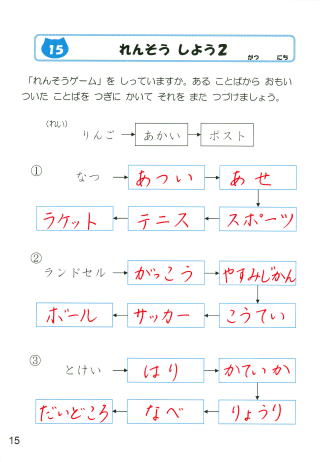 15 れんそう しよう2 がつ にち
「れんそうゲーム」を しっていますか。ある ことばから おもい
ついた ことばを つぎに かいて それを また つづけましょう。
(れい)
りんご → あかい → ポスト
① なつ → あつい → あせ
ラケット ← テニス ← スポーツ
② ランドセル → がっこう → やすみじかん
ボール ← サッカー ← こうてい
③ とけい → はり → かていか
だいどころ ← なべ ← りょうり
15